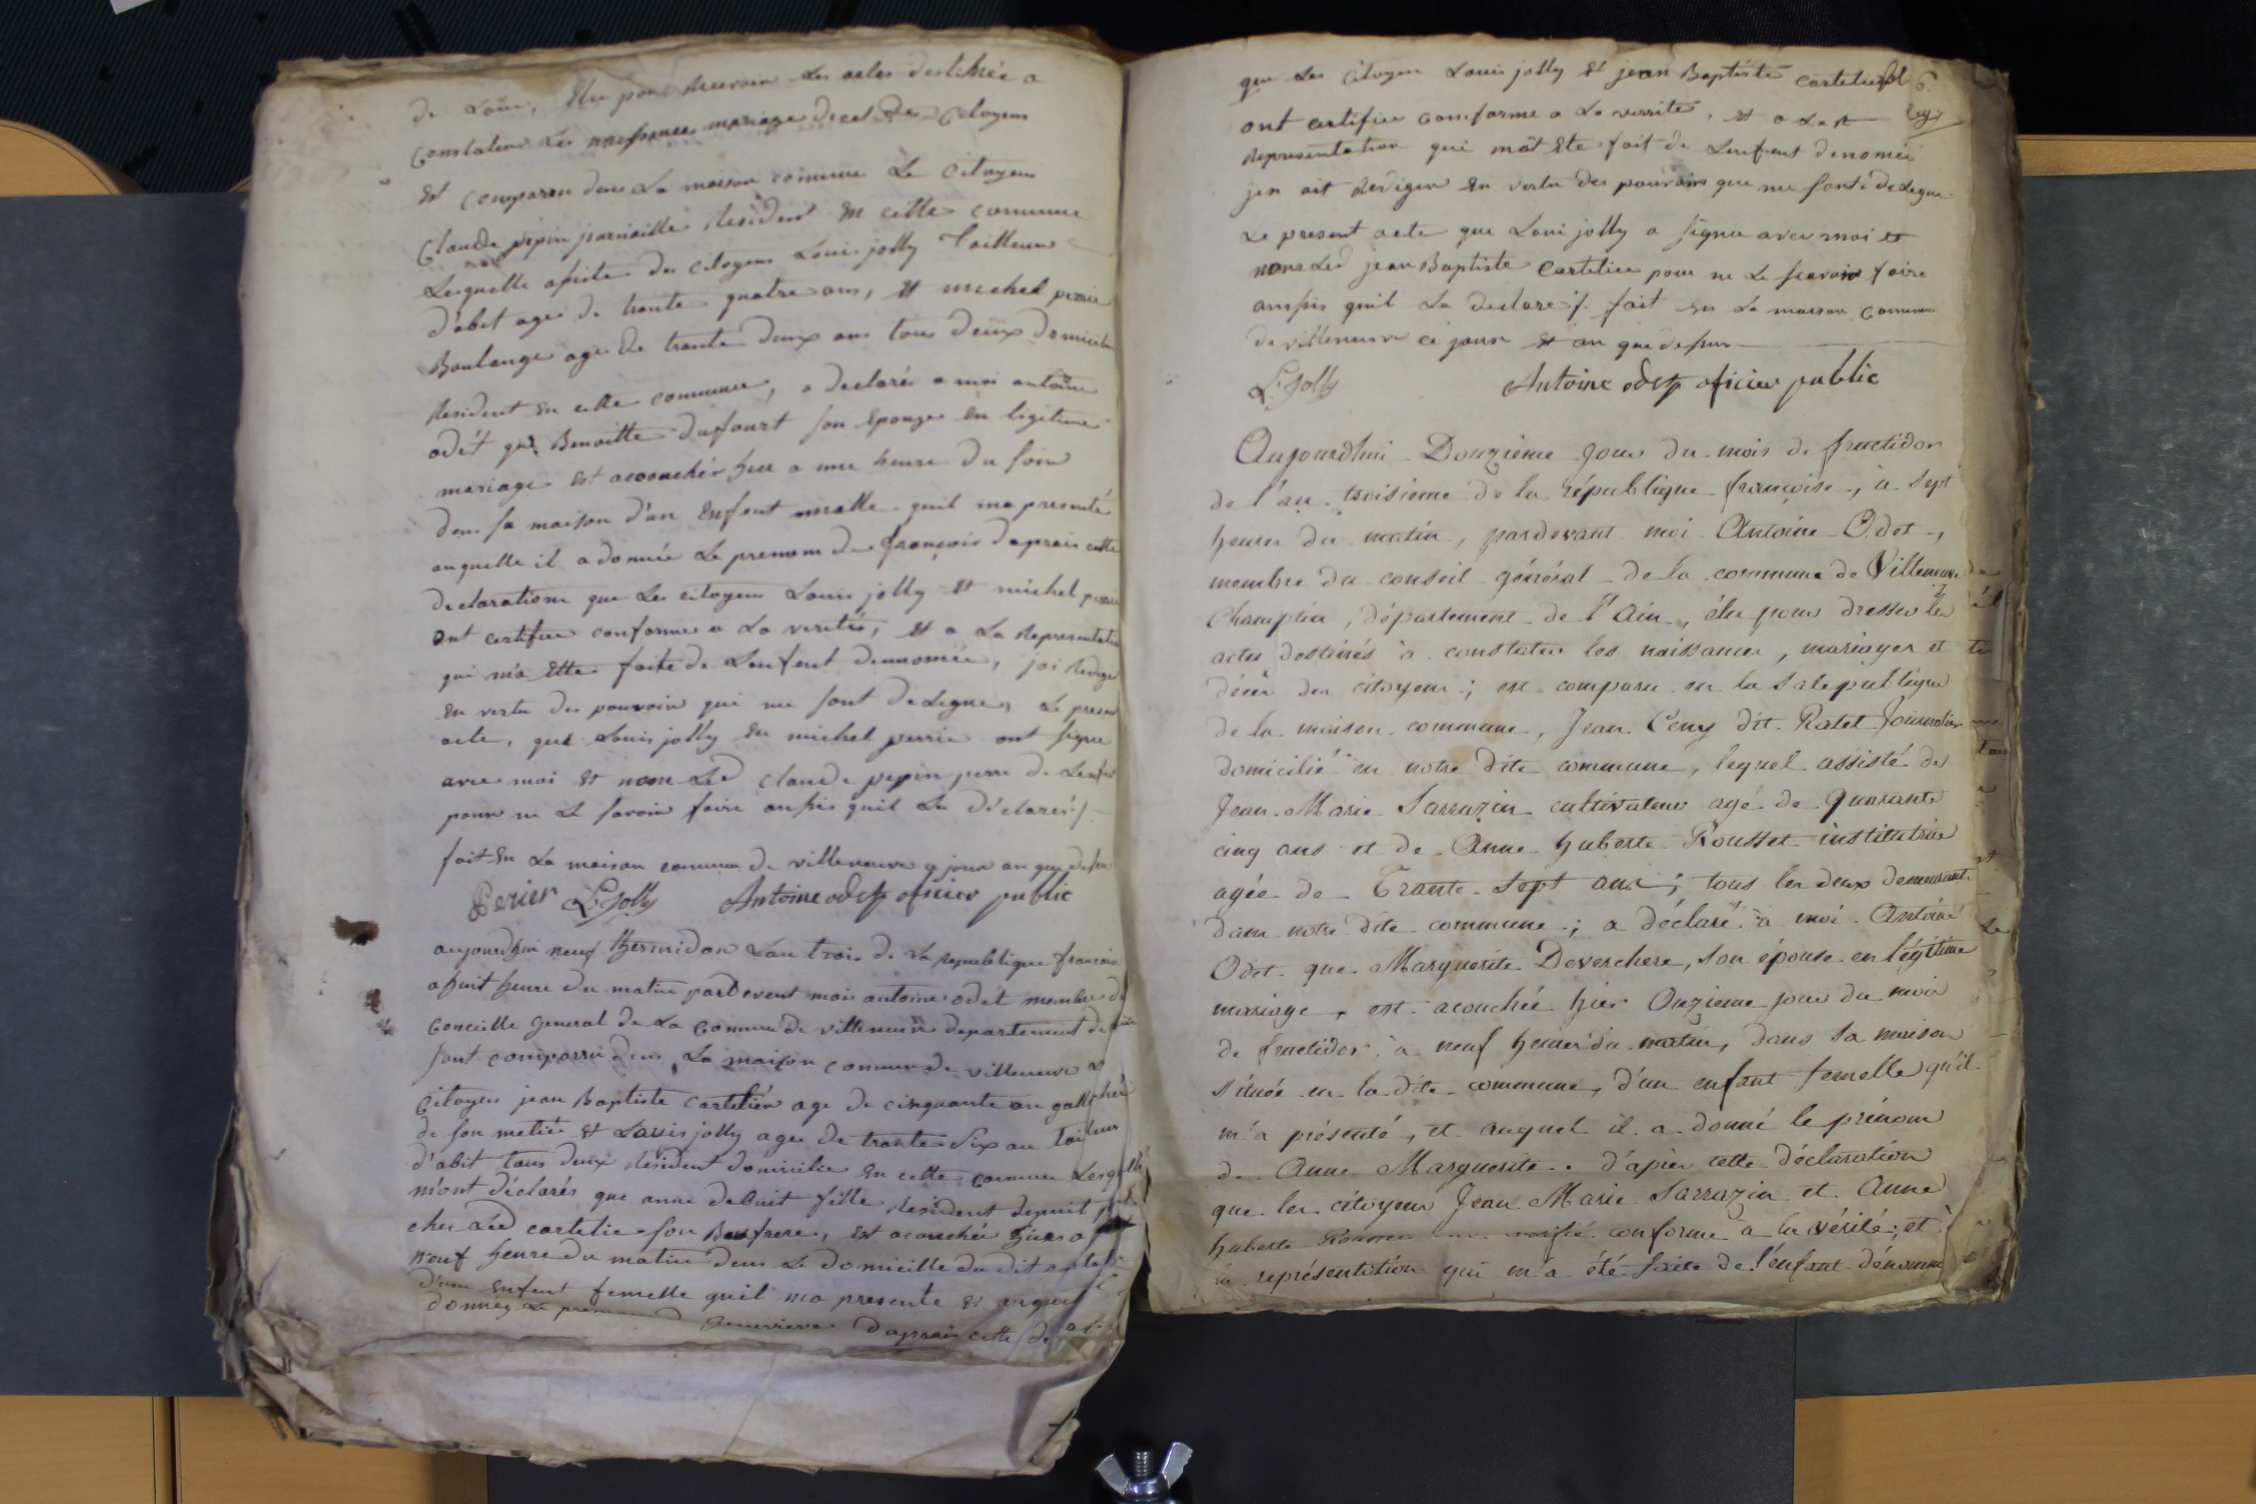 de Lain, Elu pour Recevoir Les actes destinée a
Constater Les naissances mariage deces des Citoyens
Est comparu dans La maison comune Le Citoyen
Claude pepin journaille Resident En cette commune
Lesquelle assisté des citoyens Louis jolly Tailleur
d'abit agé de trante quatre ans, Et michel perrie
Boulange age de trante deux ans tous deux domicilie
Resident En cette commune, a declarés a moi antoine
odét que Benoitte dufourt son Epouze En legitime
mariage Est acouchée hier a une heure du soir
dans sa maison d'un Enfent malle quil ma presenté
auquelle il a donnée Le prenom de françois daprais cette
declarationt que Les citoyens Louis jolly Et michel perrie
ont certifiee conforme a La verités, Et a La Representation
qui m'a Ette faite de Lenfent dennomée, jai Redige
En vertu des pouvoir qui me sont deLegues, Le presen
acte, que Louis jolly En michel perrie ont signe
avec moi Et non Led Claude pepin perre de Lenfen
pour ne Le savoir faire aussis quil La déclarés /.
fait En La maison commun de villeneuve y jour an que desu
Perier L. Jolly Antoine odet oficier public
aujourdhui neuf thermidor Lan trois de La Republique francoise
a huit heure du matin pardevent moi antoine odét membre du
Conceille general de La Commune de villeneuve departement de
sont comparru dens La maison comune de villeneuve
Citoyen jean Baptiste cartelier age de cinquante an gallocher
de son metier Et Louis jolly age de trante six an tailleur
d'abit tous deux Resident domicilie En cette comune Lesquelle
m'ont déclarés que anne debuit fille Resident depuit
cher Led cartelie son Beaufrere, Est acouchée hier a
neuf heure du matin dens Le domicille du dit cartelie
d'un Enfent femelle quil ma presente Et auquel
donnez Le prenom Genevieve Daprais cette de
que Les Citoyen Louis jolly Et jean Baptiste cartelier fol 6.
ont certifiee comforme a La verrité, Et a La
Representation qui mat Ete fait de Lenfent denomée
jen ait Rediger En vertu des pouvoirs que me sont deLegue
Le present acte que Loui jolly a signe avec moi et
non Led jean Baptiste Cartelier pour ne Le scavoir faire
aussis quil La declare /. fait En La maison Commune
de villeneuve ce jour Et an que desus
L. Jolly Antoine odet oficier public
Aujourdhui Douzieme jour du mois de fructidor
de l'an troisieme de la république françoise, à sept
heures du matin, pardevant moi Antoine Odet,
membre du conseil général de la commune de Villeneuve
Champlin, département de l'Ain, élu pour dresser les
actes destinés à constater les naissances, mariages et
décès des citoyens ; est comparu en la sale publique
de la maison commune, Jean Cony dit Ratet Journalier
domicilié en notre dite commune, lequel assisté de
Jean Marie Sarrazin cultivateur agé de quarante
cinq ans et de Anne huberte Rousset institutrice
agée de Trante sept ans ; tous les deux demeurants
dans notre dite commune ; a déclaré à moi Antoine
Odet que Marguerite Deverchere, son épouse en légitime
mariage, est acouchée hier Onzieme jour du mois
de fructidor à neuf heures du matin, dans sa maison
située en la dite commune, d'un enfant femelle qu'il
m'a présenté, et auquel il a donné le prénom
de Anne Marguerite. d'après cette déclaration
que les citoyens Jean Marie Sarrazin et Anne
huberte Rousset ont certifié conforme à la vérité ; et
la représentation qui m'a été faite de l'enfant dénommé